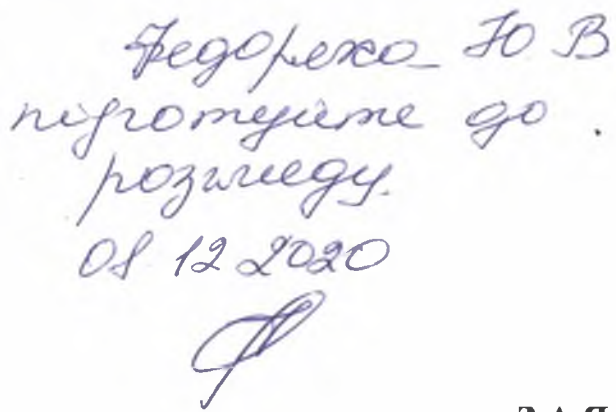 Федорехо Ю В
підготуйте до
розгляду.
08 12 2020
ЗАЯ